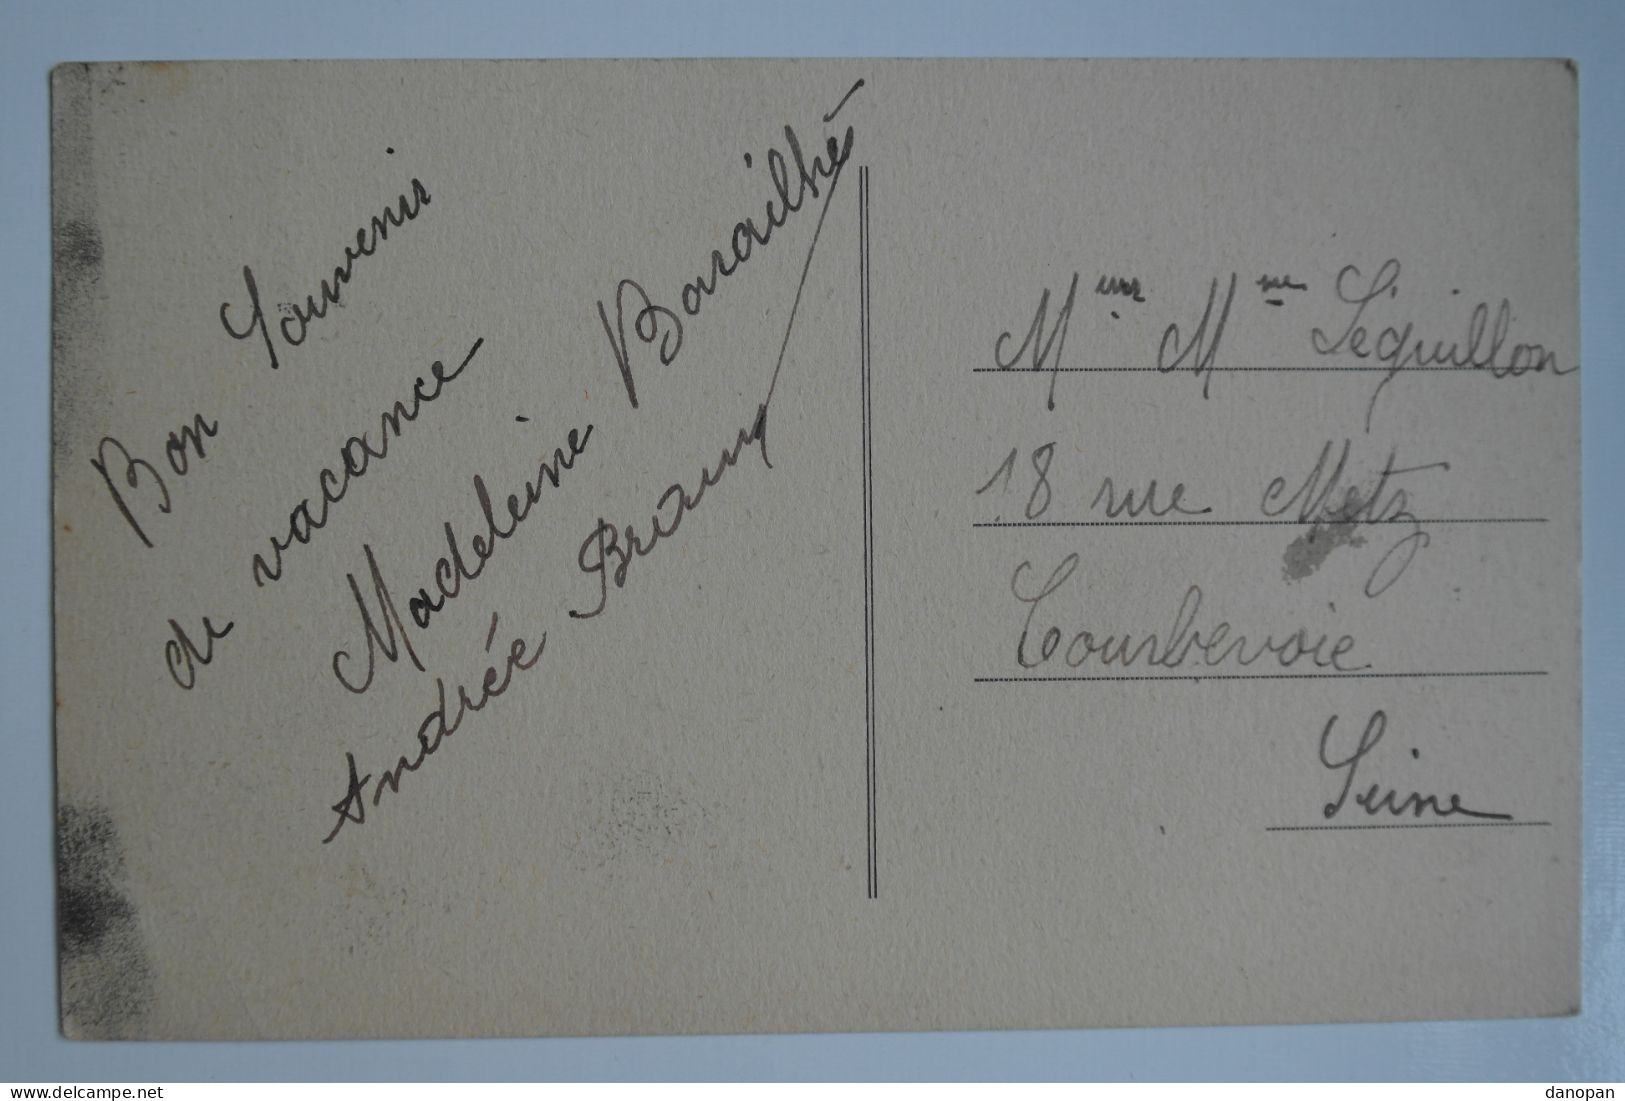 Bon Souvenir
de vacance
Madeleine Barailhé
Andrée Braux
Mieur Mme Léquillon
18 rue Metz
Courbevoie
Seine
delcampe.net
danopan